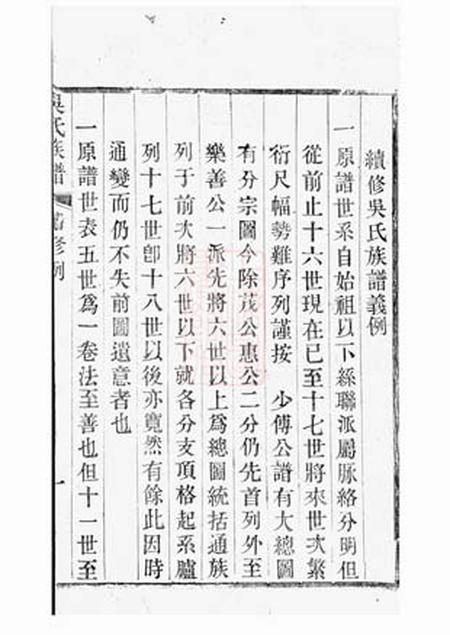 續修吳氏族譜義例
一原譜世系自始祖以下絲聯派屬脉絡分明但
從前止十六世現在已至十七世將來世次繁
衍尺幅勢難序列謹按 少傅公譜有大總圖
有分宗圖今除茂公惠公二分仍先首列外至
樂善公一派先將六世以上爲總圖統括通族
列于前次將六世以下就各分支頂格起系臚
列十七世卽十八世以後亦寬然有餘此因時
通變而仍不失前圖遺意者也
一原譜世表五世爲一卷法至善也但十一世至
吳氏族譜 修例 一